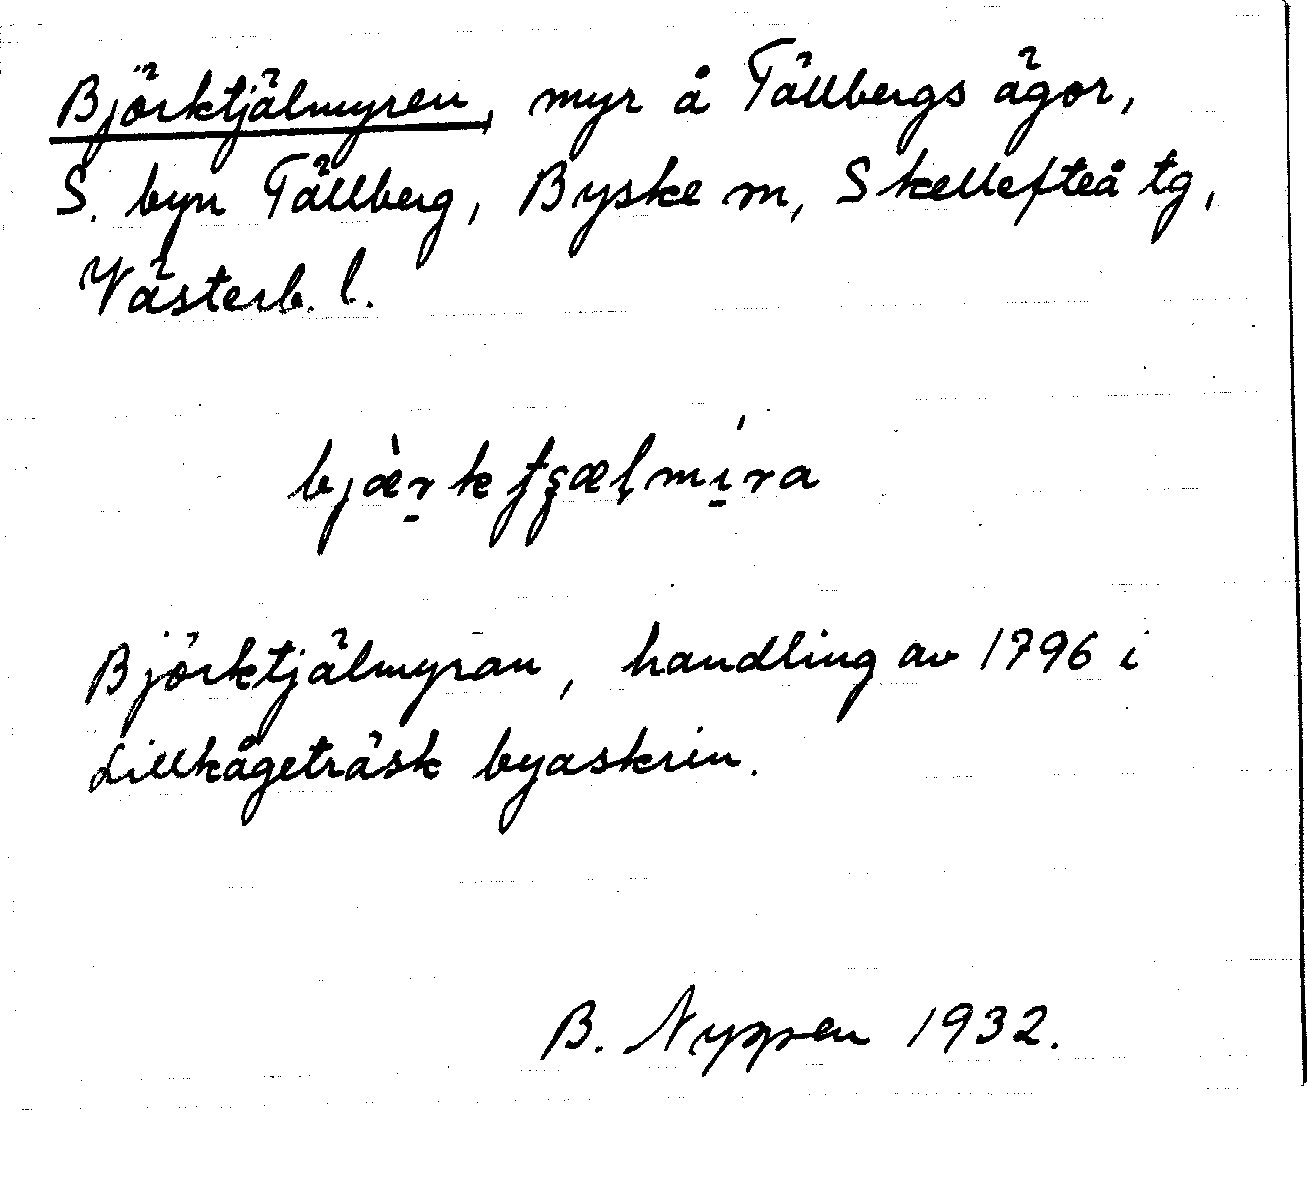 Björktjälmyren, myr å Tällbergs ägor,
S. byn Tällberg, Byske sn, Skellefteå tg,
Västerb. l.
bjæ̀r̠ktʂæļmí̠ra
Björktjälmyran, handling av 1796 i
Lillkågeträsk byaskrin.
B. Nyppen 1932.